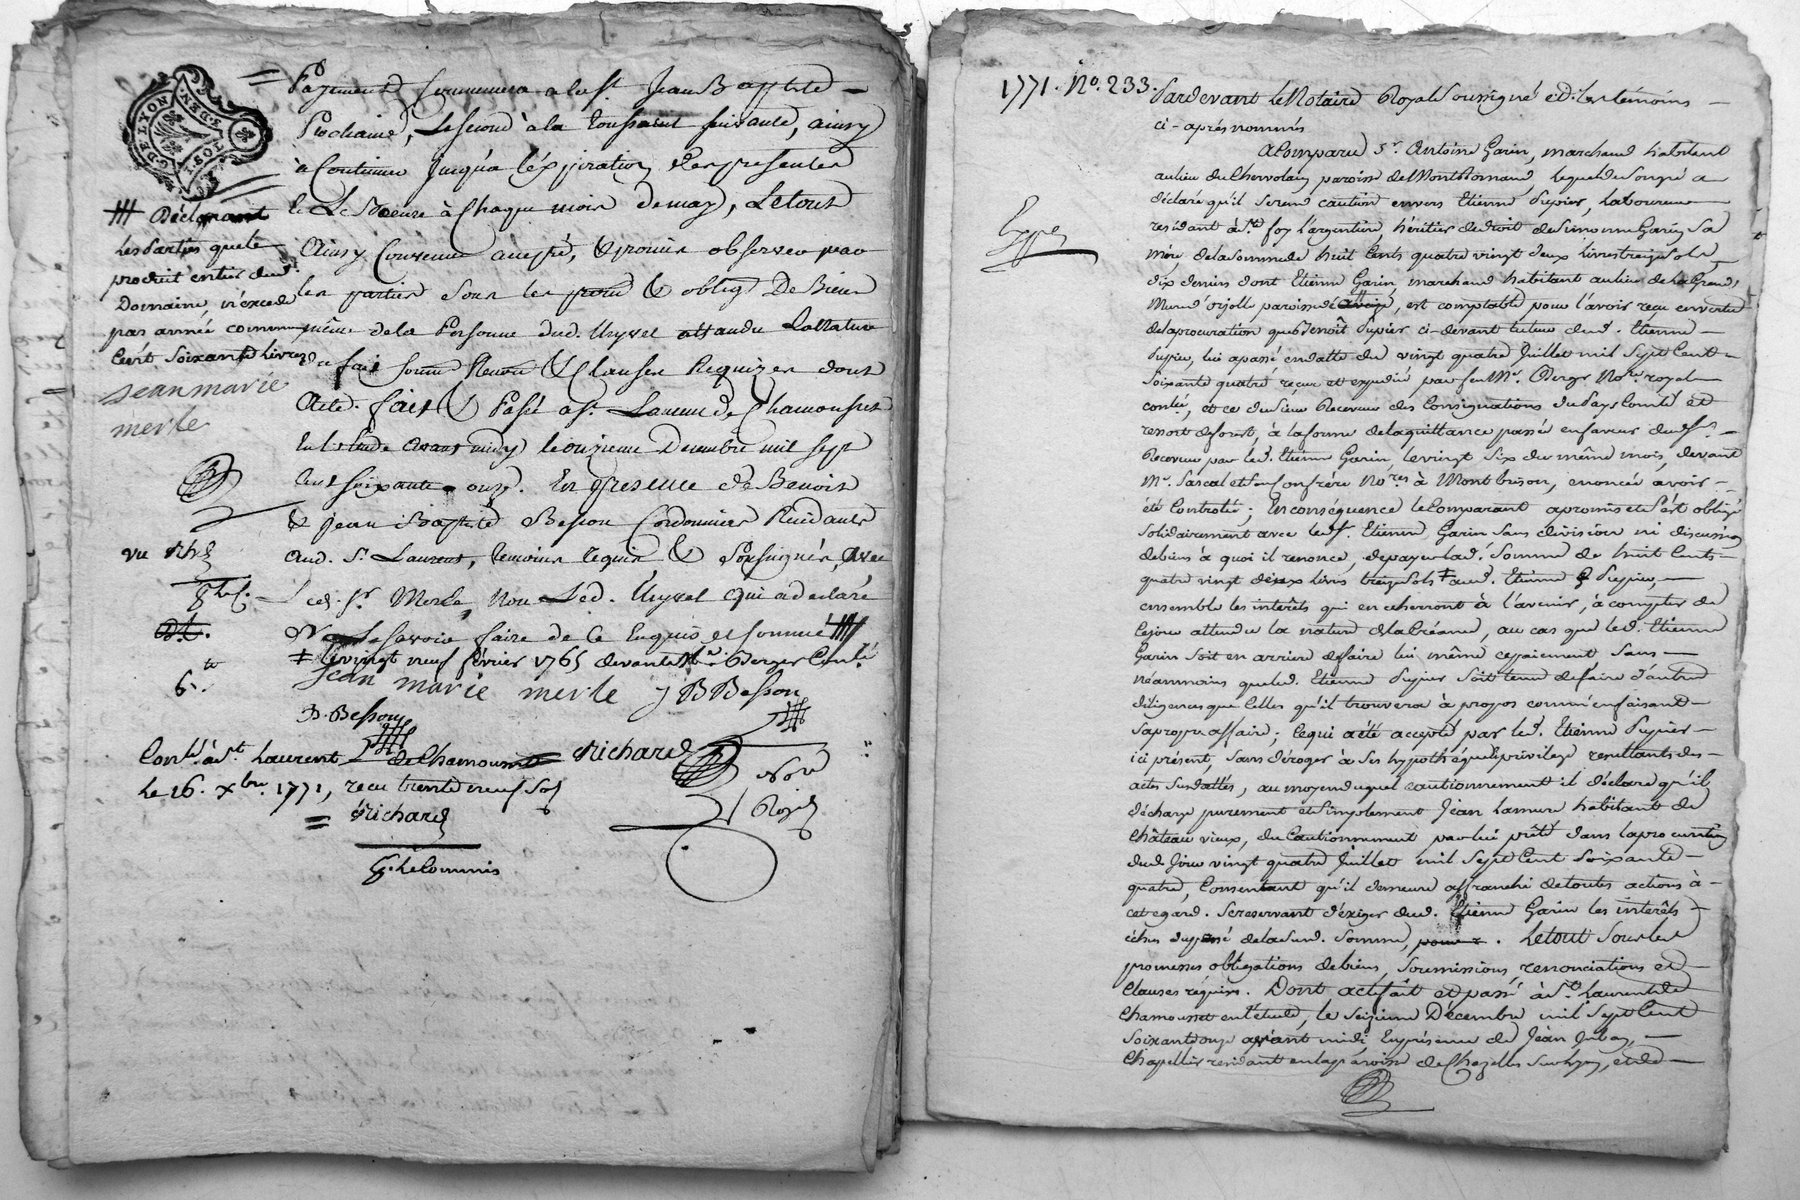 G. DE LYON
S. DEN.
= Payement Commencera a la st. Jean Baptiste
Prochaine, Le second à la toussaint suivante, ainsy
à Continuer jusqu'a l'éxpiration des presentes
à Chaque mois de may, Le tout
Ainsy Convenu accepté, & promis observer par
les parties sous les & oblig. De Biens
même de la Personne dud. Uryvel attandu La Nature
du fait soum. Renon. & Clauses Requizes dont
Acte. fait & Passé a st. Laurent de Chamousset
En l'étude avant midy le onzieme Decembre mil sept
Cent soixante onze. En presence de Benoist
& jean Baptiste Besson Cordonnier Residants
aud. St. Laurent, temoins requis & soussignés, avec
led. Sr. Merle Non Led. Uryvel qui a declaré
Ne Le savoir faire de Ce Enquis et sommé
‡ le vingt neuf février 1765 devant Me. Berger Conlé.
jean marie merle J B Besson
B. Besson
Richard
Nore
Royal
# Déclarant
Les Parties que le
produit entier dud.
Domaine, n'excede
pas année commune
Cent Soixante Livres
jean marie
merle
vu Rhd
6.te
Conlé. à St. Laurent de Chamousset
Le 16. Xbre. 1771, reçu trente neuf sols
Richard
p. le Commis
1771. No. 233.
Pardevant Le Notaire Royal Soussigné et des témoins
ci-après nommés
a Comparu Sr. Antoine Garin, marchand habitant
au lieu du Chervolin paroisse de Montromand, lequel de son gré a
déclaré qu'il se rend caution envers Etienne Pupier, Laboureur
residant à Ste. foy l'argentiere, héritier de droit de Simonne Garin Sa
mère, de la Somme de huit Cents quatre vingt deux Livres treize Sols,
dix deniers dont Etienne Garin marchand habitant au lieu de la Grand,
Maison d'ozolle paroisse d'aveize, est comptable pour l'avoir reçu en vertu
de la procuration que Benoît Pupier ci-devant tuteur dud. Etienne
Pupier, lui a passé en datte du vingt quatre Juillet mil Sept Cent
Soixante quatre reçue et expediée par feu Me. Berger Nore. royal
conlée, et ce du Sieur Receveur des Consignations du Pays Comté et
ressort de forest, à la forme de la quittance passée en faveur dud. Sr.
Receveur par led. Etienne Garin, le vingt Six du même mois, devant
Me. Pascal et Son Confrère Nores. à Montbrison, enoncée avoir
été Controlée; En conséquence le Comparant a promis et S'est obligé
Solidairement avec led. Sr. Etienne Garin Sans division ni discussion
de biens à quoi il renonce, de payer lad. Somme de huit Cents
quatre vingt deux livres treize Sols ‡ aud. Etienne Pupier,
ensemble les intérêts qui en echerront à l'avenir, à compter de
Ce jour attendu la nature de la Créance, au cas que led. Etienne
Garin Soit en arriere de faire lui même ce paiement Sans
néanmoins que led. Etienne Pupier Soit tenu de faire d'autres
diligences que Celles qu'il trouvera à propos comme en faisant
Sa propre affaire; Ce qui a été accepté par led. Etienne Pupier
ici présent, Sans déroger à Ses hypothéque et privilege resultants des
actes Susdattés, au moyen duquel cautionnement il déclare qu'il
décharge purement et Simplement Jean Lamure habitant de
Château vieux, du Cautionnement par lui prêté dans la procuration
dud. jour vingt quatre Juillet mil Sept Cent Soixante
quatre, Consentant qu'il demeure affranchi de toutes actions à
cet egard. Se reservant d'éxiger dud. Etienne Garin les intérêts
échus du passé de la Sud. Somme, . Le tout Sous les
promesses obligations de biens, Soumissions, renonciations et
Clauses réquises. Dont acte fait et passé à St. Laurent de
Chamousset en l'étude, le Seizieme Décembre mil Sept Cent
Soixante onze avant midi En présence de Jean
Chapellier residant en la paroisse de Chazelles Sur Lyon, et de